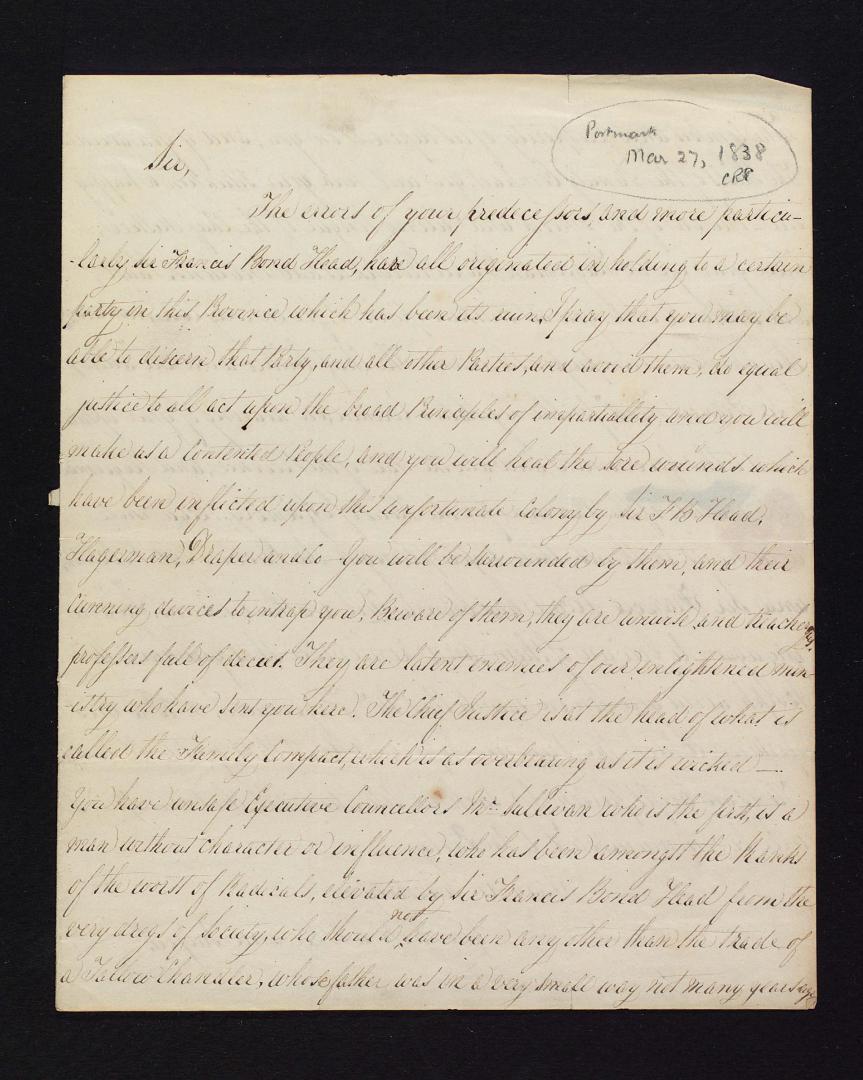 Postmark
Mar 27, 1838
CRR
Sir,
The errors of your predecessors, and more particu-
-larly Sir Francis Bond Head, have all originated in holding to a certain
party in this Province which has been its ruin, I pray that you may be
able to discern that Party, and all other Parties, and avoid them, do equal
justice to all act upon the broad Principles of impartiallity and you will
make us a Contented People, and you will heal the sore wounds which
have been inflicted upon this unfortunate Colony by Sir F B Head,
Hagerman, Draper and Co - You will be surrounded by them, and their
Cunning devices to entrap you, Beware of them, they are unwise and treacherous
professors full of deceit. They are latent enemies of our enlightened min-
-istry who have sent you here. The Chief Justice is at the head of what is
called the Family Compact, which is as overbearing as it is wicked —
You have unsafe Executive Councellors Mr Sullivan who is the first, is a
man without character or influence, who has been amongst the Ranks
of the worst of Radicals, elevated by Sir Francis Bond Head from the
very dregs of Society, who should not have been any other than the trade of
a Tallow Chandler, whose father was in a very small way not many years ago